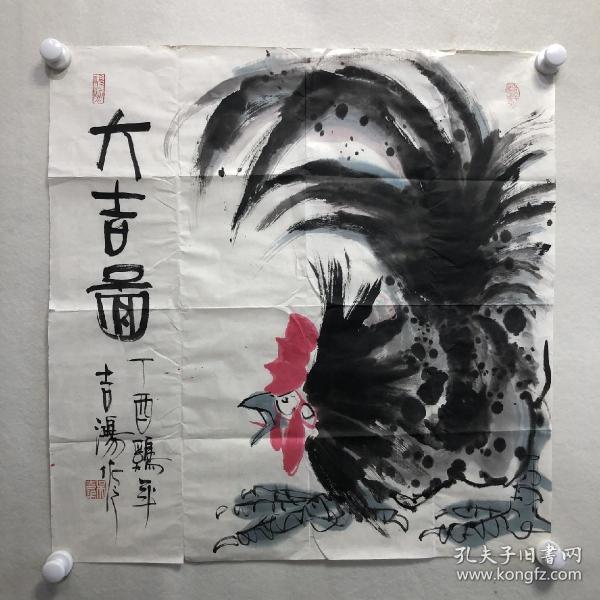 大吉圖
丁酉鷄年
吉瀑作
孔夫子旧书网
www.kongfz.com